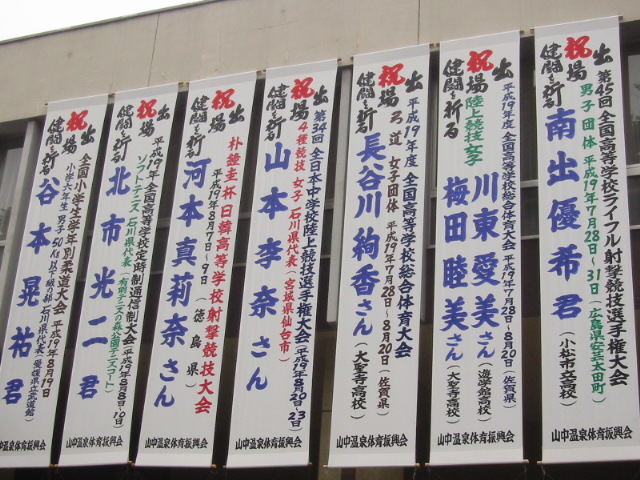 祝出場
健闘を祈る
第45回 全国高等学校ライフル射撃競技選手権大会
男子団体 平成19年7月28日~31日(広島県安芸太田町)
南出優希君
(小松市立高校)
山中温泉体育振興会
祝出場
健闘を祈る
平成19年度 全国高等学校総合体育大会 平成19年7月28日~8月20日(佐賀県)
陸上競技女子
川東愛美さん(遊学館高校)
梅田睦美さん(大聖寺高校)
山中温泉体育振興会
祝出場
健闘を祈る
平成19年度 全国高等学校総合体育大会
弓道 女子団体 平成19年7月28日~8月20日(佐賀県)
長谷川絢香さん
(大聖寺高校)
山中温泉体育振興会
祝出場
健闘を祈る
第34回 全日本中学校陸上競技選手権大会(平成19年8月20~23日)
4種競技 女子 石川県代表(宮城県仙台市)
山本李奈さん
山中温泉体育振興会
祝出場
健闘を祈る
朴鐘圭杯日韓高等学校射撃競技大会
平成19年8月7日~9日(徳島県)
河本真莉奈さん
山中温泉体育振興会
祝出場
健闘を祈る
平成19年 全国高等学校定時制通信制大会(平成19年8月8日~10日)
ソフトテニス 石川県代表(有明テニスの森公園テニスコート)
北市光二君
山中温泉体育振興会
祝出場
健闘を祈る
全国小学生学年別柔道大会 平成19年8月19日
小学六年生 男子50kg以下級の部 石川県代表(愛媛県立武道館)
谷本晃祐君
山中温泉体育振興会